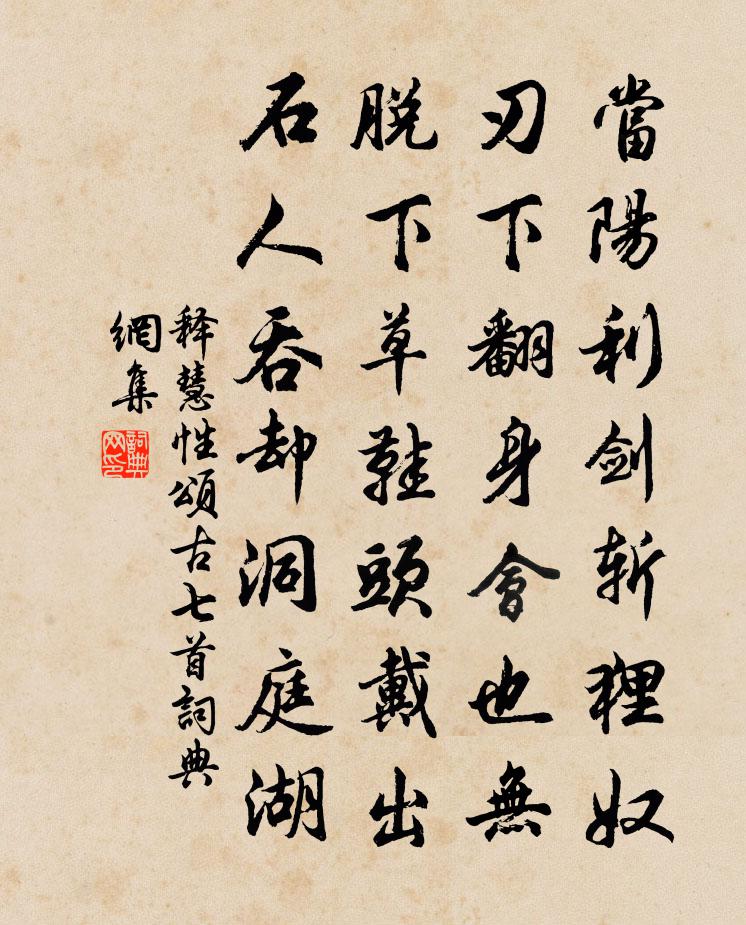 當陽利剑斩狸奴
刃下翻身會也無
脫下草鞋頭戴出
石人吞却洞庭湖
释慧性頌古七首詞典
網集
詞典
网印